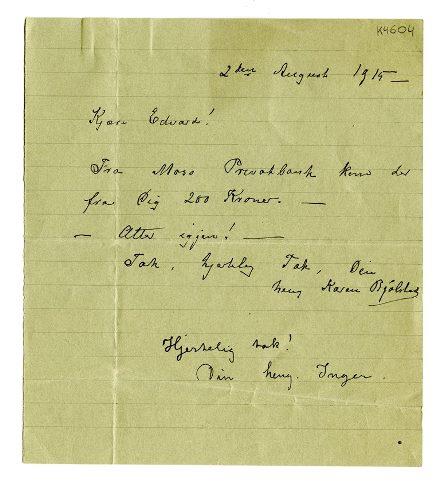 K4604
2den August 1915
Kjære Edvard!
Fra Moss Privatbank kom der
fra Dig 200 Kroner. —
— Atter igjen! —
Tak, hjertelig Tak, Din
heng Karen Bjølstad
Hjertelig tak!
Din heng. Inger.